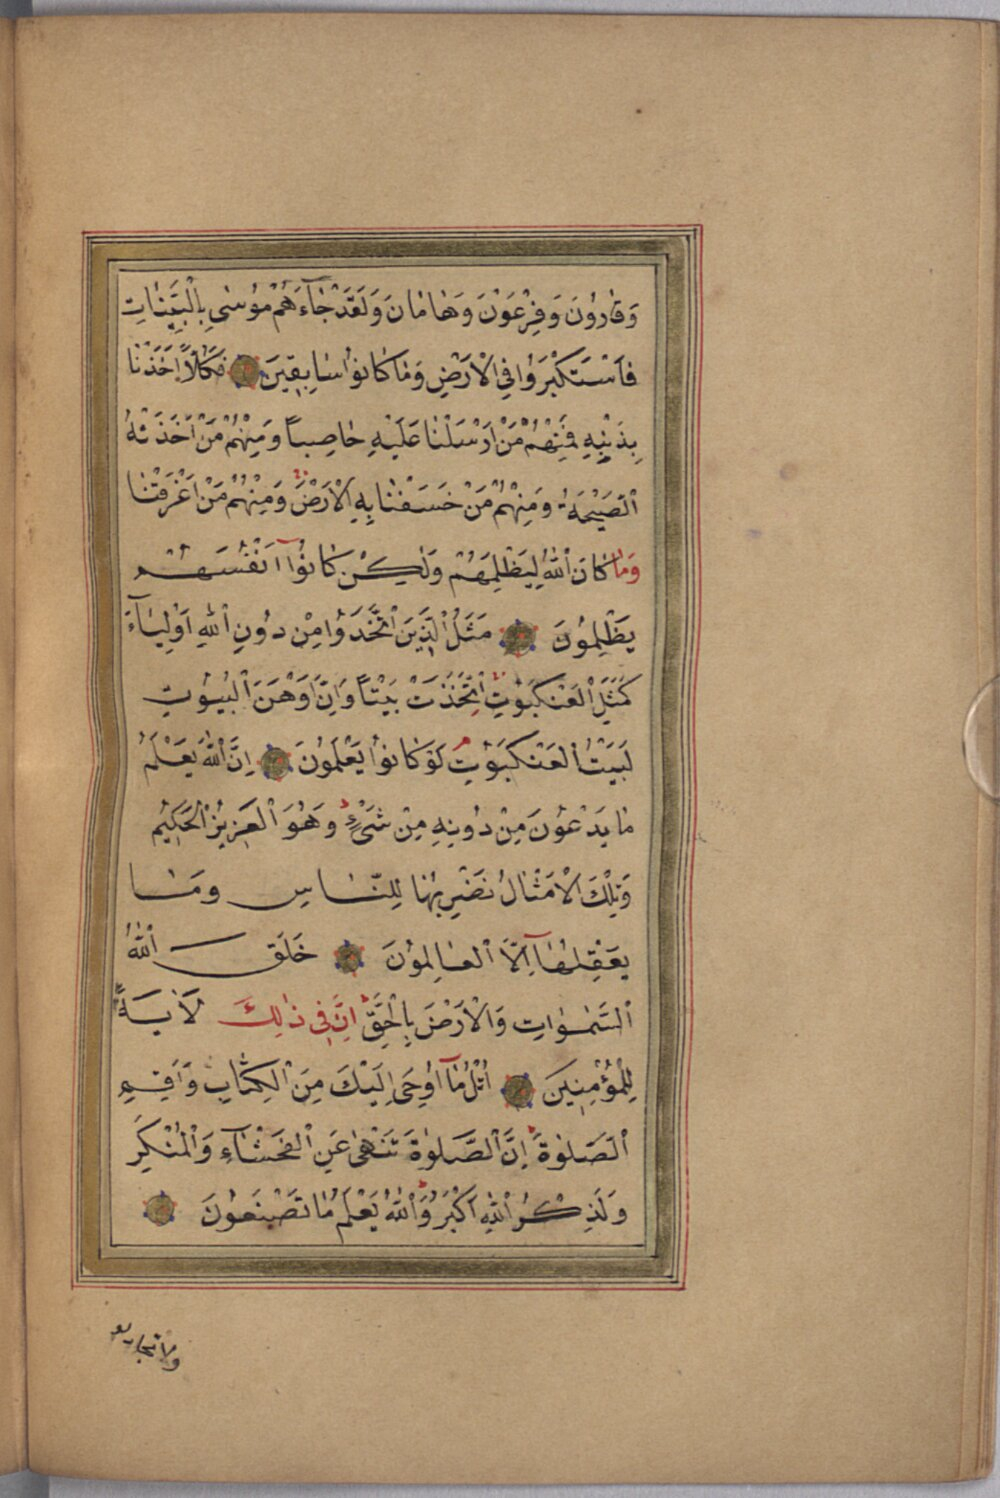 وَقَارُونَ وَفِرْعَوْنَ وَهَامَانَ وَلَقَدْ جَآءَهُمْ مُوسٰى بِالْبَيِّنَاتِ
فَاسْتَكْبَرُوا فِي الْاَرْضِ وَمَا كَانُوا سَابِقِينَ فَكُلًّا اَخَذْنَا
بِذَنْبِهِ فَمِنْهُمْ مَنْ اَرْسَلْنَا عَلَيْهِ حَاصِباً وَمِنْهُمْ مَنْ اَخَذَتْهُ
الصَّيْحَةُ وَمِنْهُمْ مَنْ خَسَفْنَا بِهِ الْاَرْضَ وَمِنْهُمْ مَنْ اَغْرَقْنَا
وَمَا كَانَ اللّٰهُ لِيَظْلِمَهُمْ وَلٰكِنْ كَانُوآ اَنْفُسَهُمْ
يَظْلِمُونَ مَثَلُ الَّذِينَ اتَّخَذُوا مِنْ دُونِ اللّٰهِ اَوْلِيَآءَ
كَمَثَلِ الْعَنْكَبُوتِ اِتَّخَذَتْ بَيْتاً وَاِنَّ اَوْهَنَ الْبُيُوتِ
لَبَيْتُ الْعَنْكَبُوتِ لَوْ كَانُوا يَعْلَمُونَ اِنَّ اللّٰهَ يَعْلَمُ
مَا يَدْعُونَ مِنْ دُونِهِ مِنْ شَيْءٍ وَهُوَ الْعَزِيزُ الْحَكِيمُ
وَتِلْكَ الْاَمْثَالُ نَضْرِبُهَا لِلنَّاسِ وَمَا
يَعْقِلُهَآ اِلَّا الْعَالِمُونَ خَلَقَ اللّٰهُ
السَّمٰوَاتِ وَالْاَرْضَ بِالْحَقِّ اِنَّ فِي ذٰلِكَ لَاٰيَةً
لِلْمُؤْمِنِينَ اُتْلُ مَآ اُوحِيَ اِلَيْكَ مِنَ الْكِتَابِ وَاَقِمِ
الصَّلٰوةَ اِنَّ الصَّلٰوةَ تَنْهٰى عَنِ الْفَحْشَآءِ وَالْمُنْكَرِ
وَلَذِكْرُ اللّٰهِ اَكْبَرُ وَاللّٰهُ يَعْلَمُ مَا تَصْنَعُونَ
ولا تجادلو